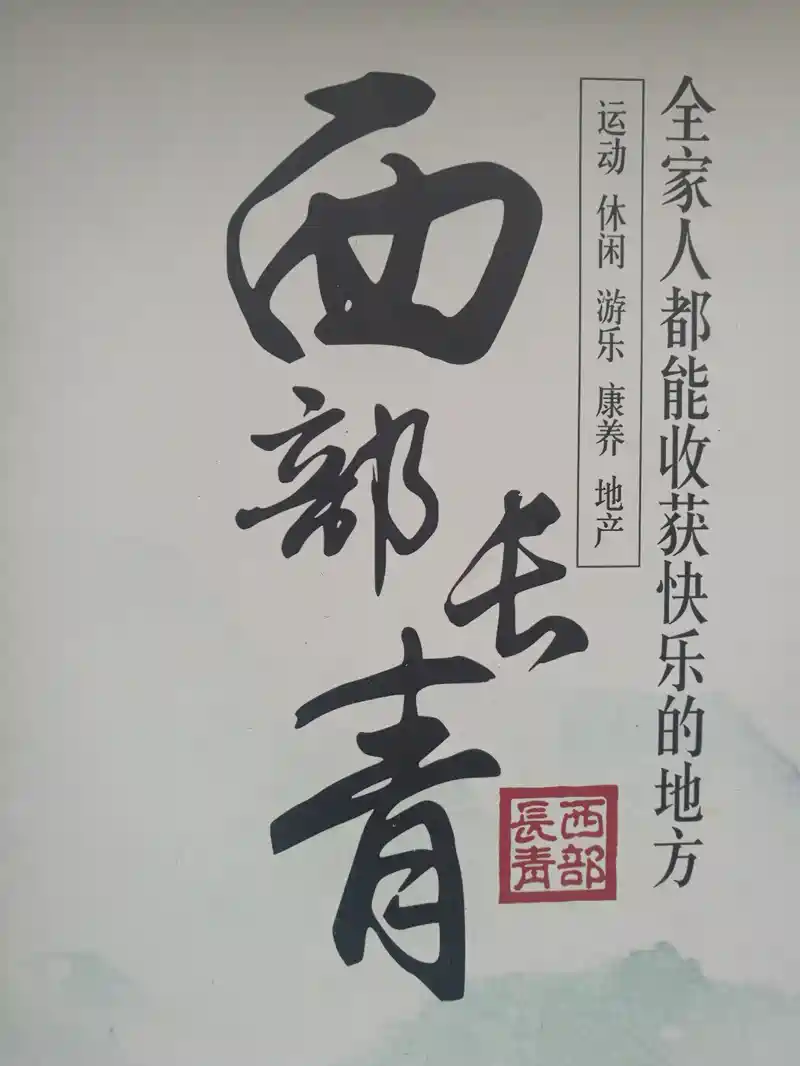 全家人都能收获快乐的地方
运动 休闲 游乐 康养 地产
西部长青
西部
長青